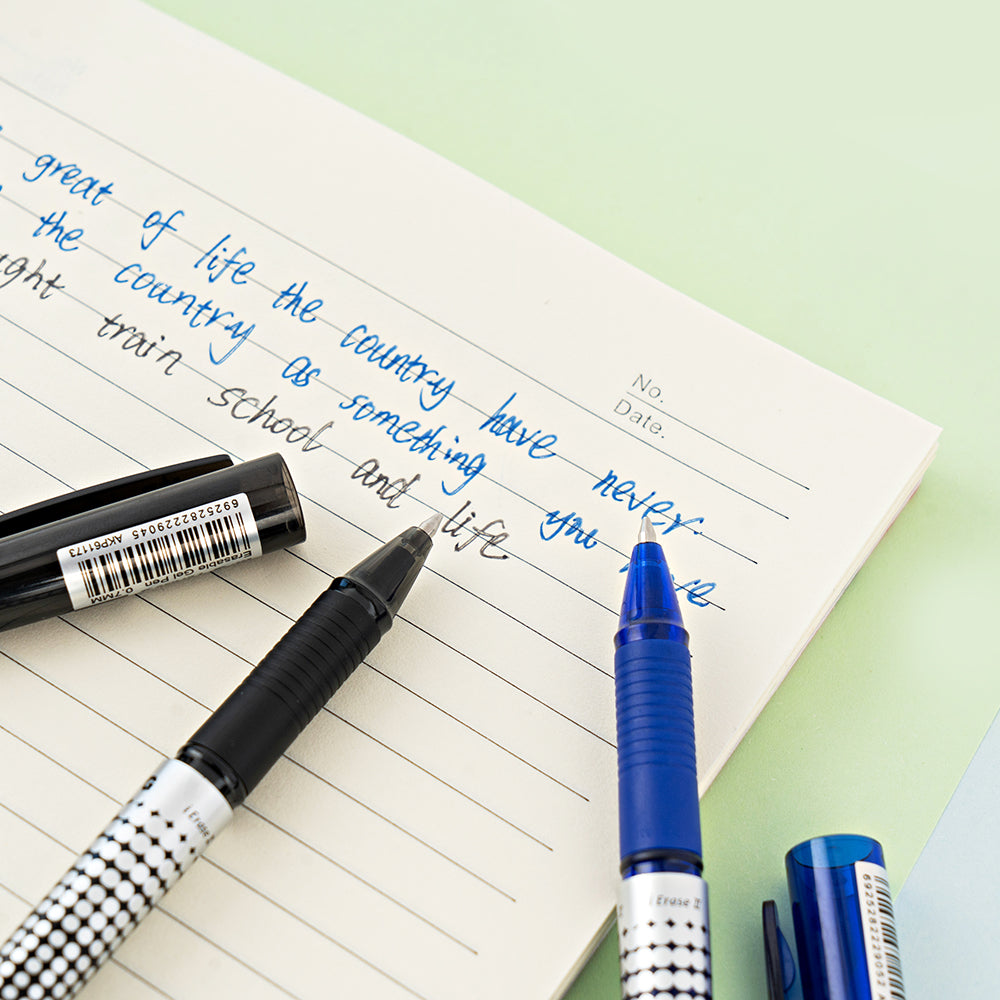 No.
Date.
great of life the country have never.
the country as something you
train school and life
6925282229045 AKP61173
Erasable Gel Pen 0.7MM
iErase
iErase II
6925282229052